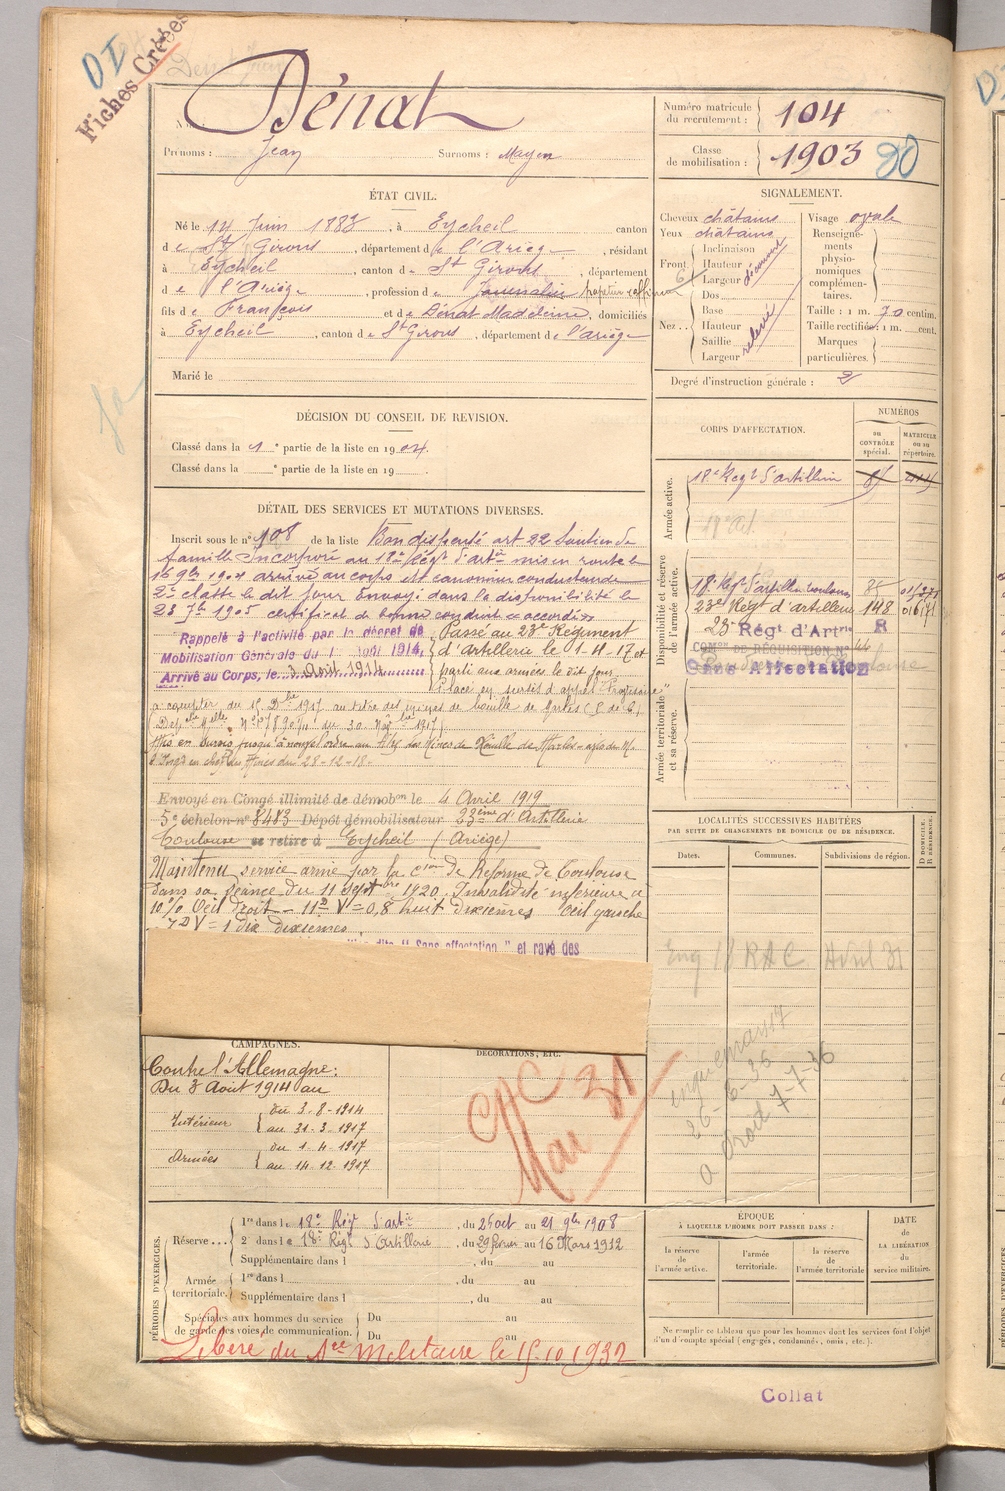 DI
Fiches Créées
Dénat
Numéro matricule du recrutement : 104
Prénoms : Jean Surnoms : Mayen
Classe de mobilisation : 1903 20
ÉTAT CIVIL.
Né le 14 Juin 1883, à Eycheil canton
de St Girons, département de l'Ariège, résidant
à Eycheil, canton de St Girons, département
de l'Ariège, profession de Journalier
fils de François et de Dénat Madeleine, domiciliés
à Eycheil, canton de St Girons, département de l'Ariège
Marié le
SIGNALEMENT.
Cheveux châtains
Yeux châtains
Front
Inclinaison
Hauteur
Largeur
découvert
Nez
Dos
Base
Hauteur
Saillie
Largeur
relevé
Visage ovale
Renseignements physionomiques complémentaires.
Taille : 1 m. 70 centim.
Taille rectifiée : 1 m. cent.
Marques particulières.
Degré d'instruction générale : 2
DÉCISION DU CONSEIL DE REVISION.
Classé dans la 1e partie de la liste en 1904.
Classé dans la e partie de la liste en 19 .
DÉTAIL DES SERVICES ET MUTATIONS DIVERSES.
Inscrit sous le n° 108 de la liste Bon dispensé art 22 Soutien de
famille Incorporé au 18e Régt d'artie mis en route le
16 9bre 1904 arrivé au corps et canonnier conducteur de
2e classe le dit jour Envoyé dans la disponibilité le
23 7bre 1905 certificat de bonne conduite accordé
Rappelé à l'activité par le décret de
Mobilisation Générale du 1 Août 1914,
Arrivé au Corps, le 3 Août 1914
Passé au 23e Régiment
d'artillerie le 1-4-17 et
parti aux armées le dit jour
à compter du 15 Dbre 1917 au titre des mines de houille de
du 30 Novbre 1917
Mis en sursis jusqu'à nouvel ordre au titre des Mines de Houille de
des Mines du 28-12-18.
Envoyé en Congé illimité de démobon le 4 Avril 1919
5e échelon n° 8483 Dépôt démobilisateur 23ème d'Artillerie
Toulouse se retire à Eycheil (Ariège)
Maintenu service armé par la con de Réforme de Toulouse
dans sa séance du 11 septbre 1920. Invalidité inférieure à
10% Oeil droit - V = 0,8 huit dixièmes Oeil gauche
V = 1 dix dixièmes.
"Sans affectation" et rayé des
CORPS D'AFFECTATION.
NUMÉROS
au CONTRÔLE spécial.
MATRICULE ou au répertoire.
Armée active.
18e Régt d'artillerie
Disponibilité et réserve de l'armée active.
18e Régt d'artillerie Toulouse
23e Régt d'artillerie 148
23e Régt d'Artrie R
COMon DE RÉQUISITION N° 44
Sans Affectation
Armée territoriale et sa réserve.
LOCALITÉS SUCCESSIVES HABITÉES
PAR SUITE DE CHANGEMENTS DE DOMICILE OU DE RÉSIDENCE.
Dates.
Communes.
Subdivisions de région.
D DOMICILE. R RÉSIDENCE.
Avril 31
26-6-36
7-7-36
CAMPAGNES.
Contre l'Allemagne :
Du 3 Août 1914 au
Intérieur du 3-8-1914
au 31-3-1917
Armées du 1-4-1917
au 14-12-1917
DÉCORATIONS, ETC.
Mai 31
PÉRIODES D'EXERCICES.
Réserve...
1re dans le 18e Régt d'artie, du 25 oct au 21 9bre 1908
2e dans le 18e Régt d'Artillerie, du 29 février au 16 Mars 1912
Supplémentaire dans l , du au
Armée territoriale.
1re dans l , du au
Supplémentaire dans l , du au
Spéciales aux hommes du service de garde des voies de communication.
Du au
Du au
Libéré du Sce militaire le 15.10.1932
ÉPOQUE
À LAQUELLE L'HOMME DOIT PASSER DANS :
la réserve de l'armée active.
l'armée territoriale.
la réserve de l'armée territoriale
DATE DE LA LIBÉRATION du service militaire.
Ne remplir ce tableau que pour les hommes dont les services font l'objet
d'un décompte spécial (engagés, condamnés, omis, etc.).
Collat